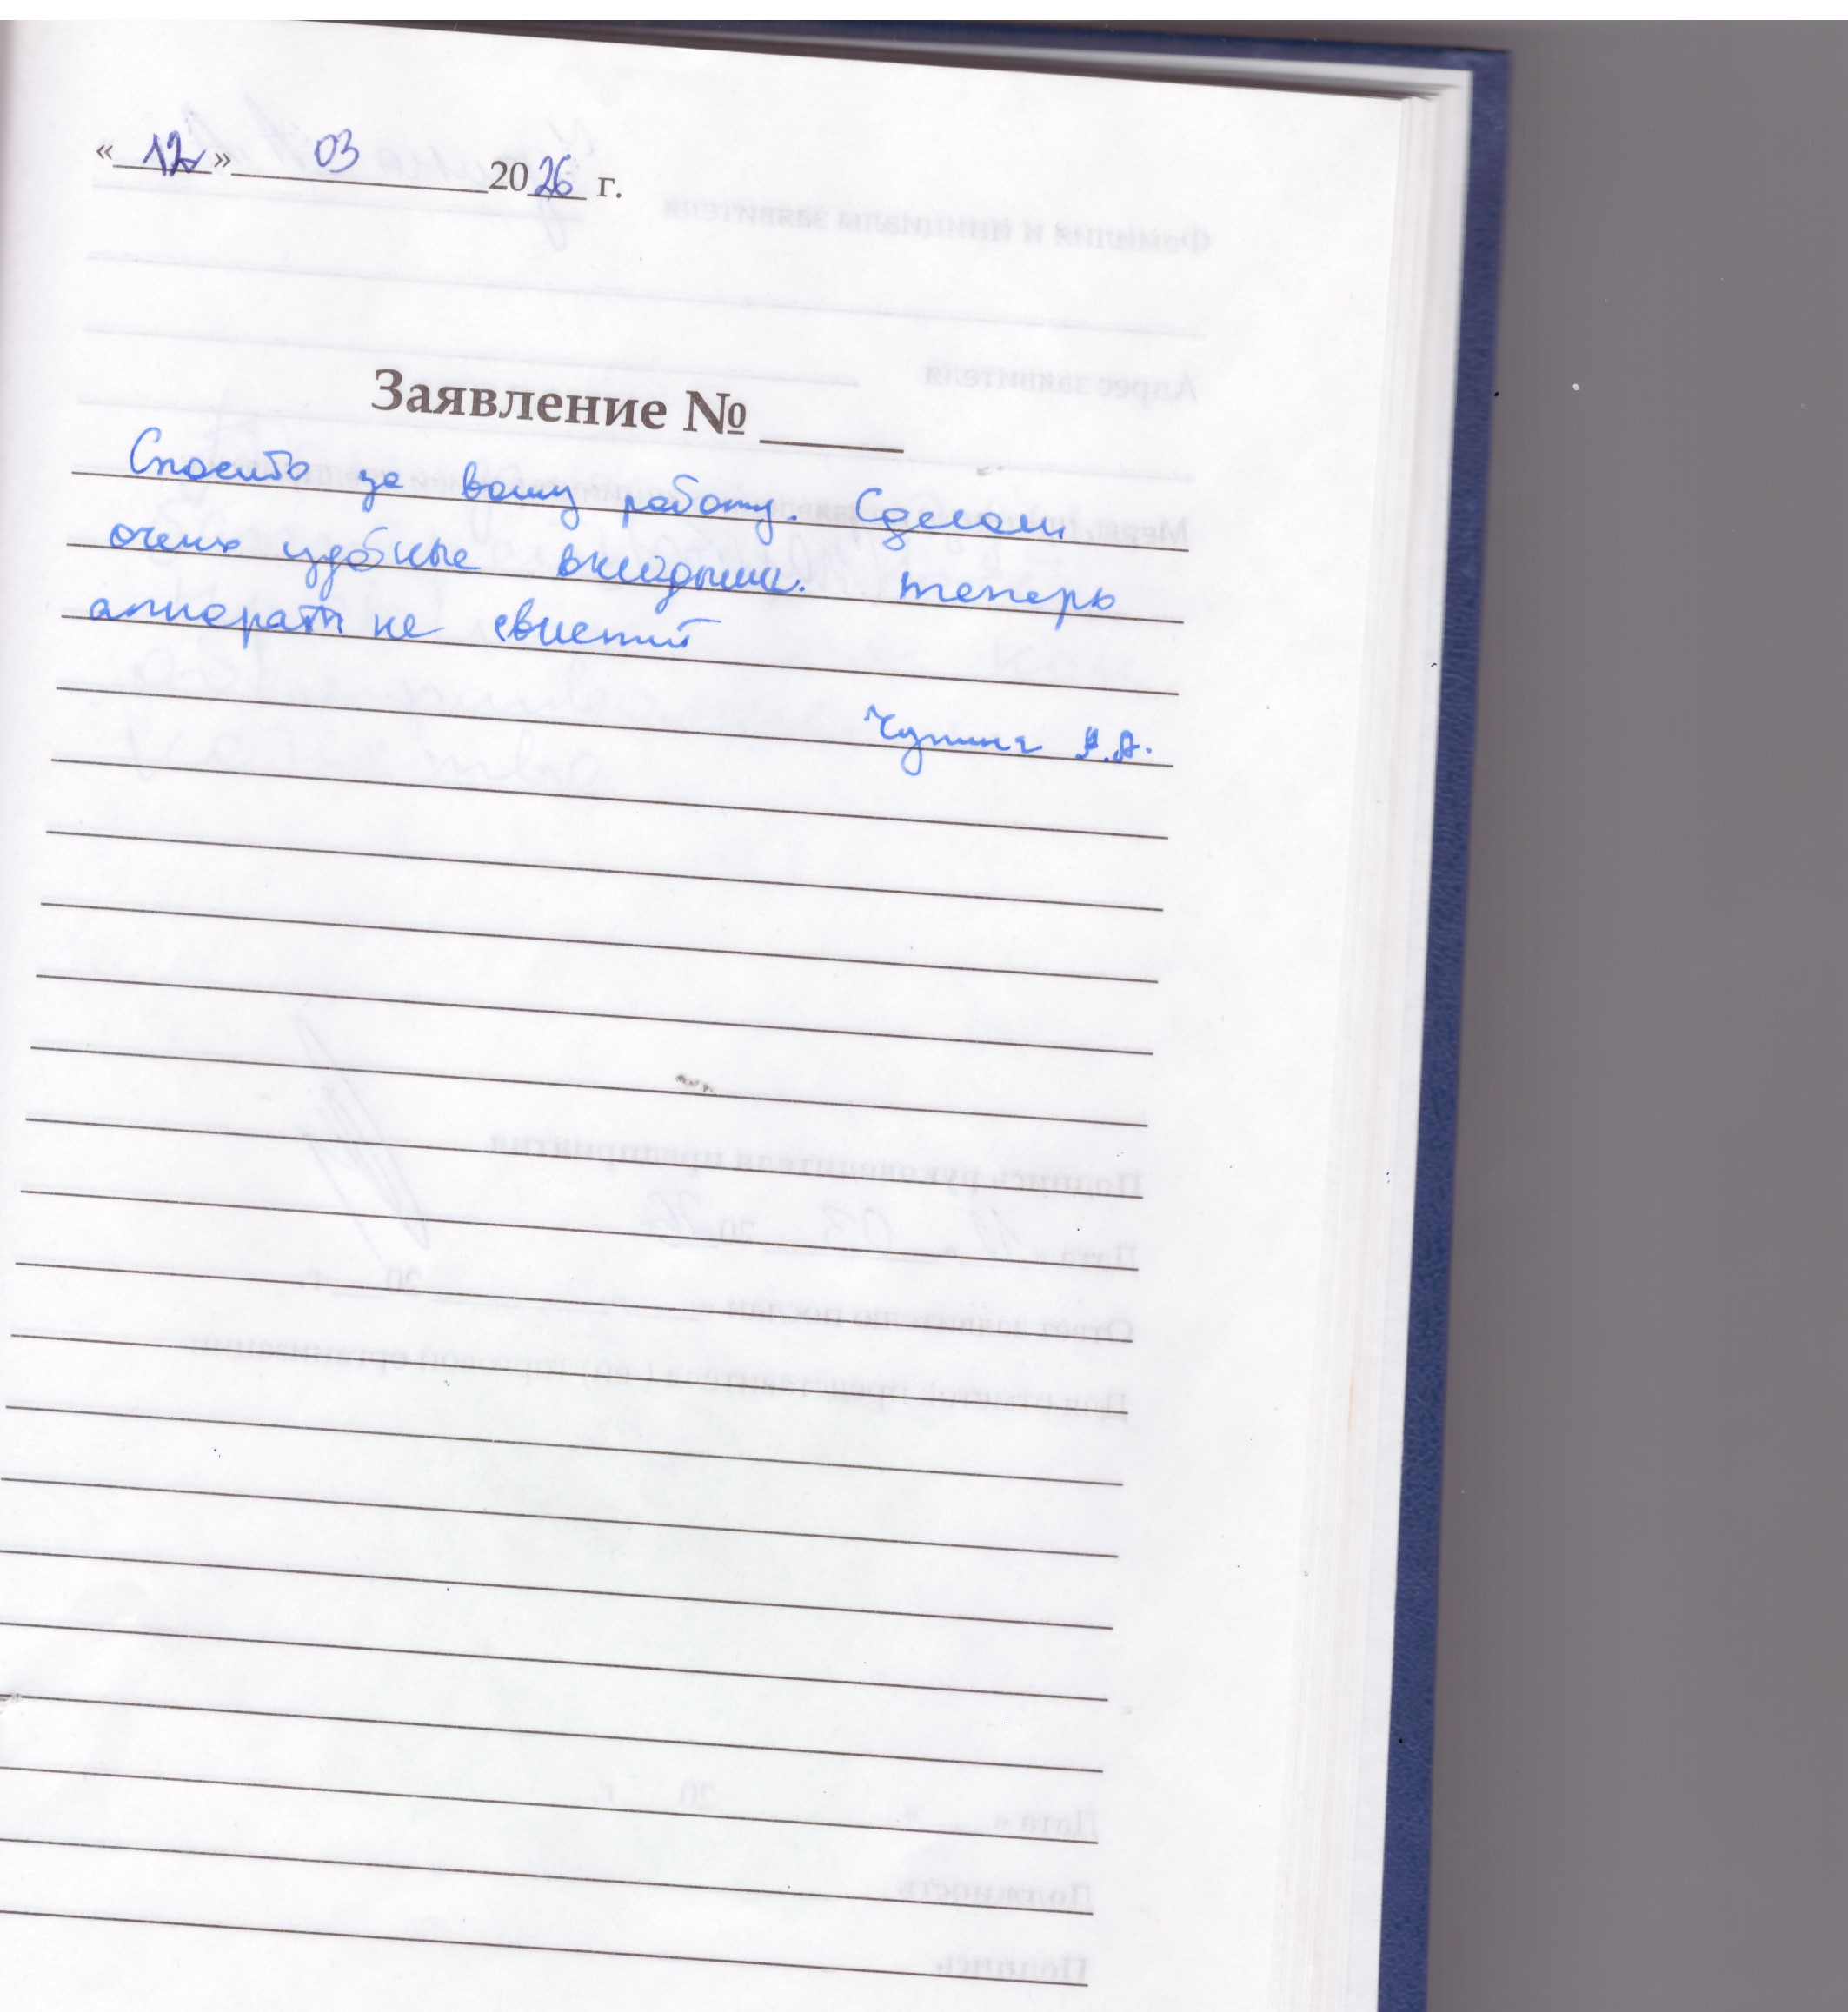 «12» 03 2026 г.
Заявление №
Спасибо за вашу работу. Сделали
очень удобные вкладыши. теперь
аппарат не свистит
Чупина